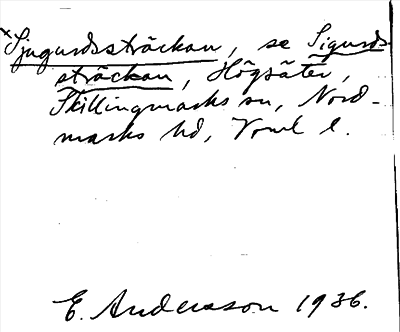 ×Sjugurdssträckan, se Sigurds-
sträckan, Högsäter,
Skillingmarks sn, Nord-
marks hd, Vrml l.
E. Andersson 1936.